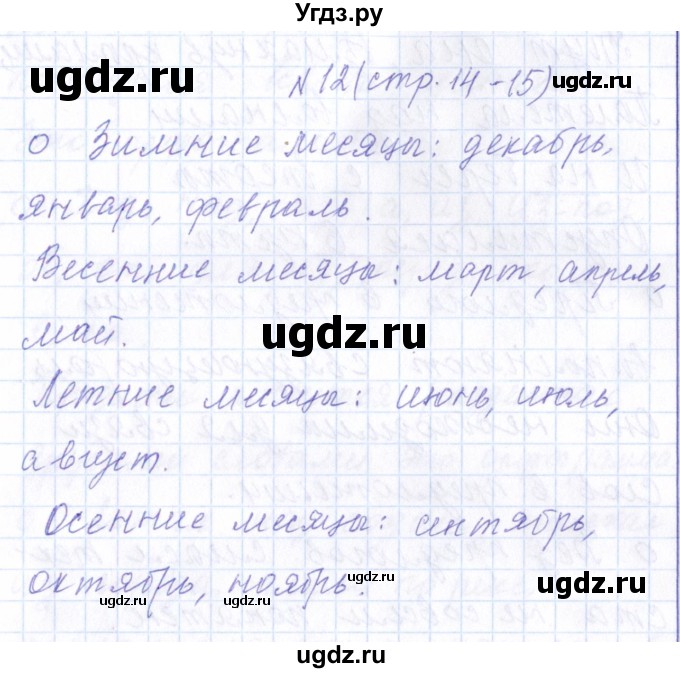 Угдз.ру
ugdz.ru
N 12 (стр. 14-15)
ugdz.ru
о Зимние месяцы: декабрь,
январь, февраль.
Весенние месяцы: март, апрель,
ugdz.ru
май.
Летние месяцы: июнь, июль,
август.
Осенние месяцы: сентябрь,
октябрь, ноябрь.
ugdz.ru
ugdz.ru
ugdz.ru
ugdz.ru